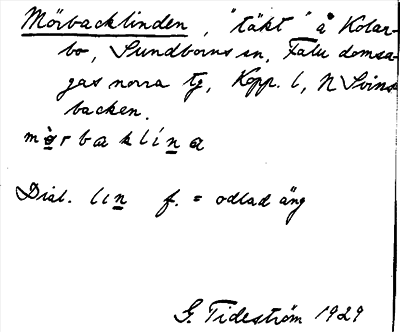 Mörbacklinden, "täkt" å Kolar-
bo, Sundborns sn, Falu domsa-
gas norra tg, Kopp. l, N Svins-
backen.
mö̀rbaklína
Dial. lin f. = odlad äng
G. Tideström 1929